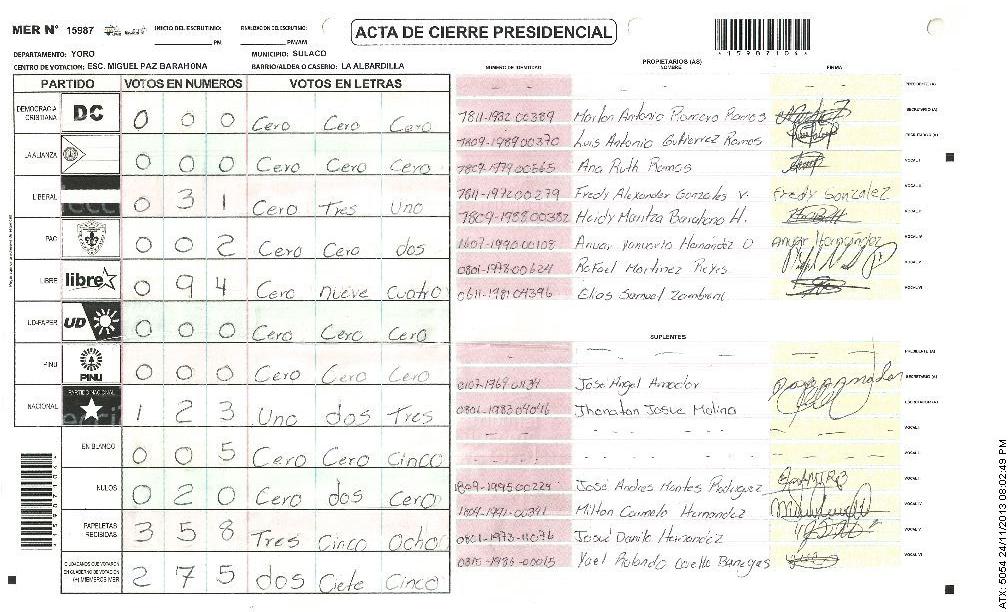 MER N° 15987 INICIO DEL ESCRUTINIO: PM FINALIZACION DEL ESCRUTINIO: PM/AM
ACTA DE CIERRE PRESIDENCIAL
DEPARTAMENTO: YORO MUNICIPIO: SULACO
CENTRO DE VOTACION: ESC. MIGUEL PAZ BARAHONA BARRIO/ALDEA O CASERIO: LA ALBARDILLA
PARTIDO VOTOS EN NUMEROS VOTOS EN LETRAS
DEMOCRACIA CRISTIANA DC 0 0 0 Cero Cero Cero
LA ALIANZA 0 0 0 Cero Cero Cero
LIBERAL 0 3 1 Cero Tres Uno
PAC 0 0 2 Cero Cero dos
LIBRE libre 0 9 4 Cero nueve cuatro
UD-FAPER UD 0 0 0 Cero Cero Cero
PINU PINU 0 0 0 Cero Cero Cero
NACIONAL PARTIDO NACIONAL 1 2 3 Uno dos Tres
EN BLANCO 0 0 5 Cero Cero Cinco
NULOS 0 2 0 Cero dos Cero
PAPELETAS RECIBIDAS 3 5 8 Tres Cinco Ocho
CIUDADANOS QUE VOTARON EN CUADERNO DE VOTACION (+) MIEMBROS MER 2 7 5 dos Ciete Cinco
PROPIETARIOS (AS)
NUMERO DE IDENTIDAD NOMBRE FIRMA
PRESIDENTE (A)
1811-1982 00389 Marlon Antonio Romero Ramos SECRETARIO (A)
1809-1989 00370 Luis Antonio Gutierrez Ramos ESCRUTADOR (A)
1807-1979 00565 Ana Ruth Ramos VOCAL I
1811-1972 00279 Fredy Alexander Gonzales V. Fredy Gonzalez VOCAL II
1809-1988 00382 Heidy Maritza Barahona H.
1607-1990 00108 Anuar Hernandez O Anuar Hernández VOCAL IV
0801-1978-00624 Rafael Martinez Reyes VOCAL V
0611-1981 04396 Elias Samuel Zambrano VOCAL VI
SUPLENTES
PRESIDENTE (A)
0107-1969-01134 Jose Angel Amador SECRETARIO (A)
0801-1983 04046 Jhonatan Josue Molina ESCRUTADOR (A)
VOCAL I
1809-1995 00224 José Andres Montes Rodriguez
1804-1991-00391 Milton Carmelo Hernandez VOCAL IV
0801-1973-11076 Josué Danilo Hernandez VOCAL V
0315-1986-00015 Yael Rolando Coello Banegas VOCAL VI
ATX: 5054 24/11/2013 08:02:49 PM